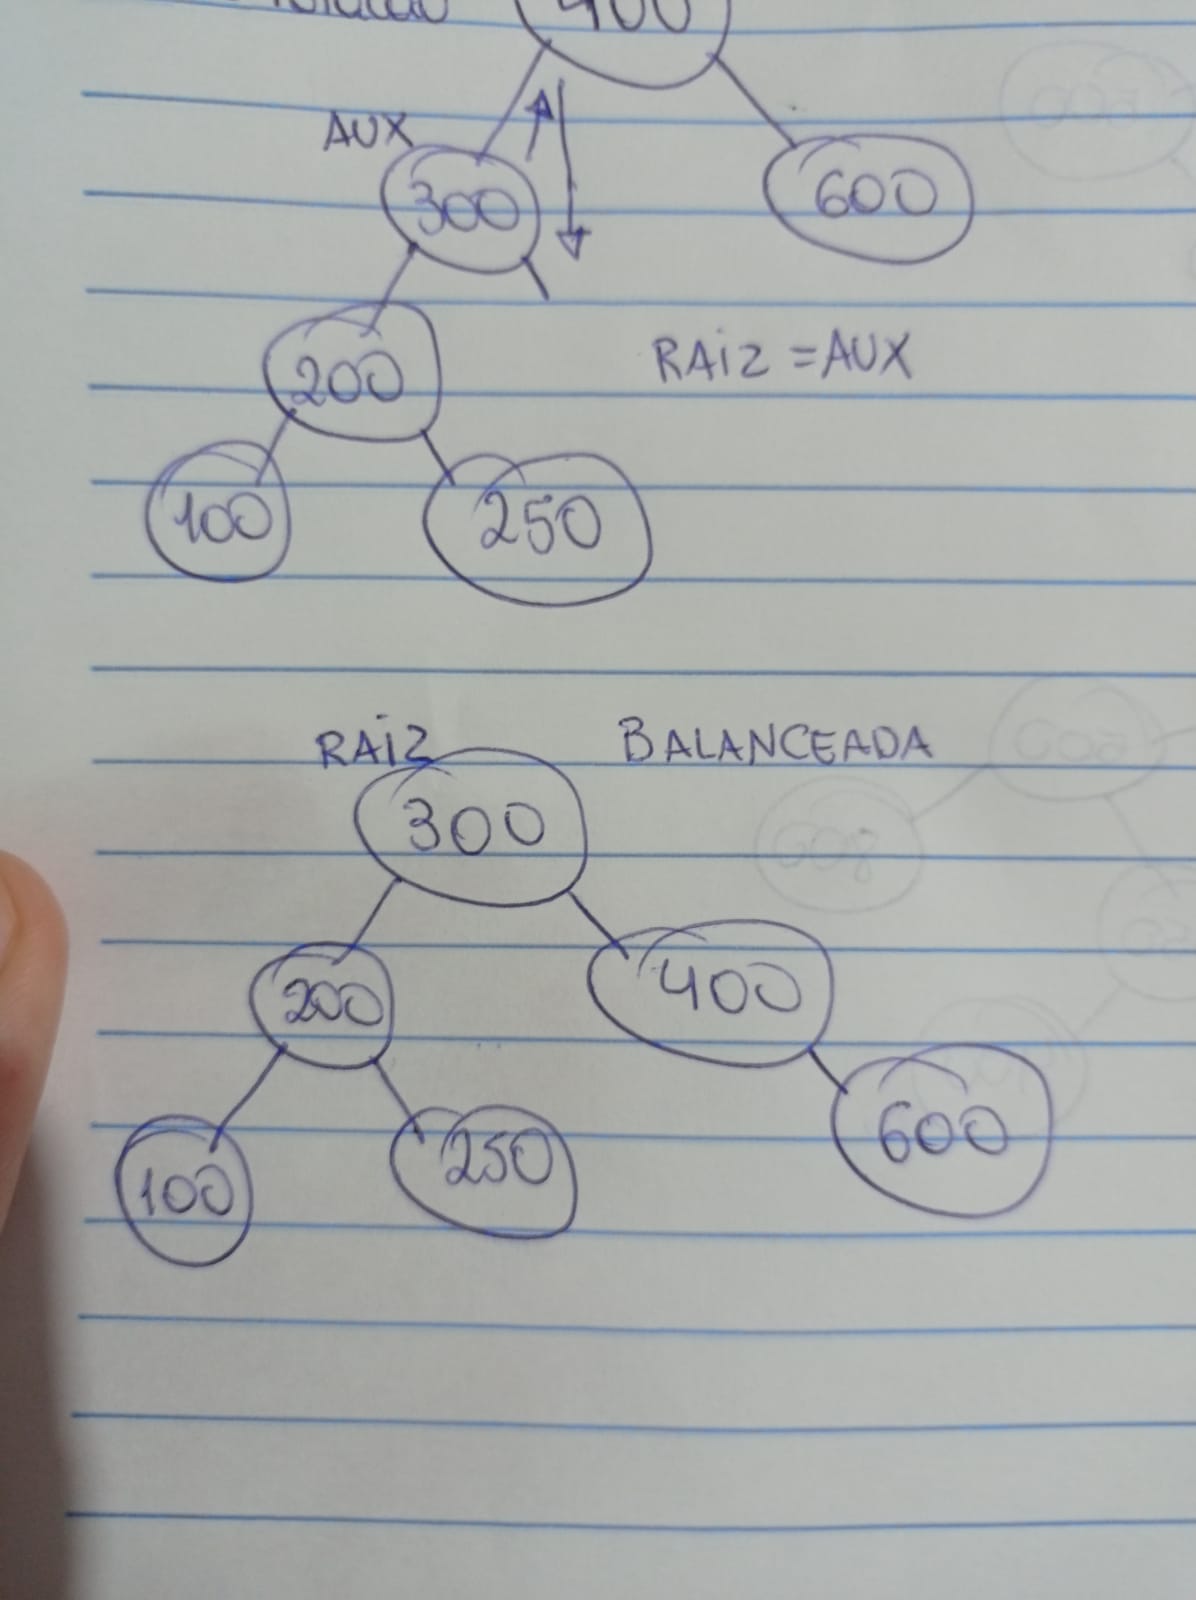 400
AUX
300 600
200 RAiz = AUX
100 250
RAiz BALANCEADA
300
200 400
100 250 600